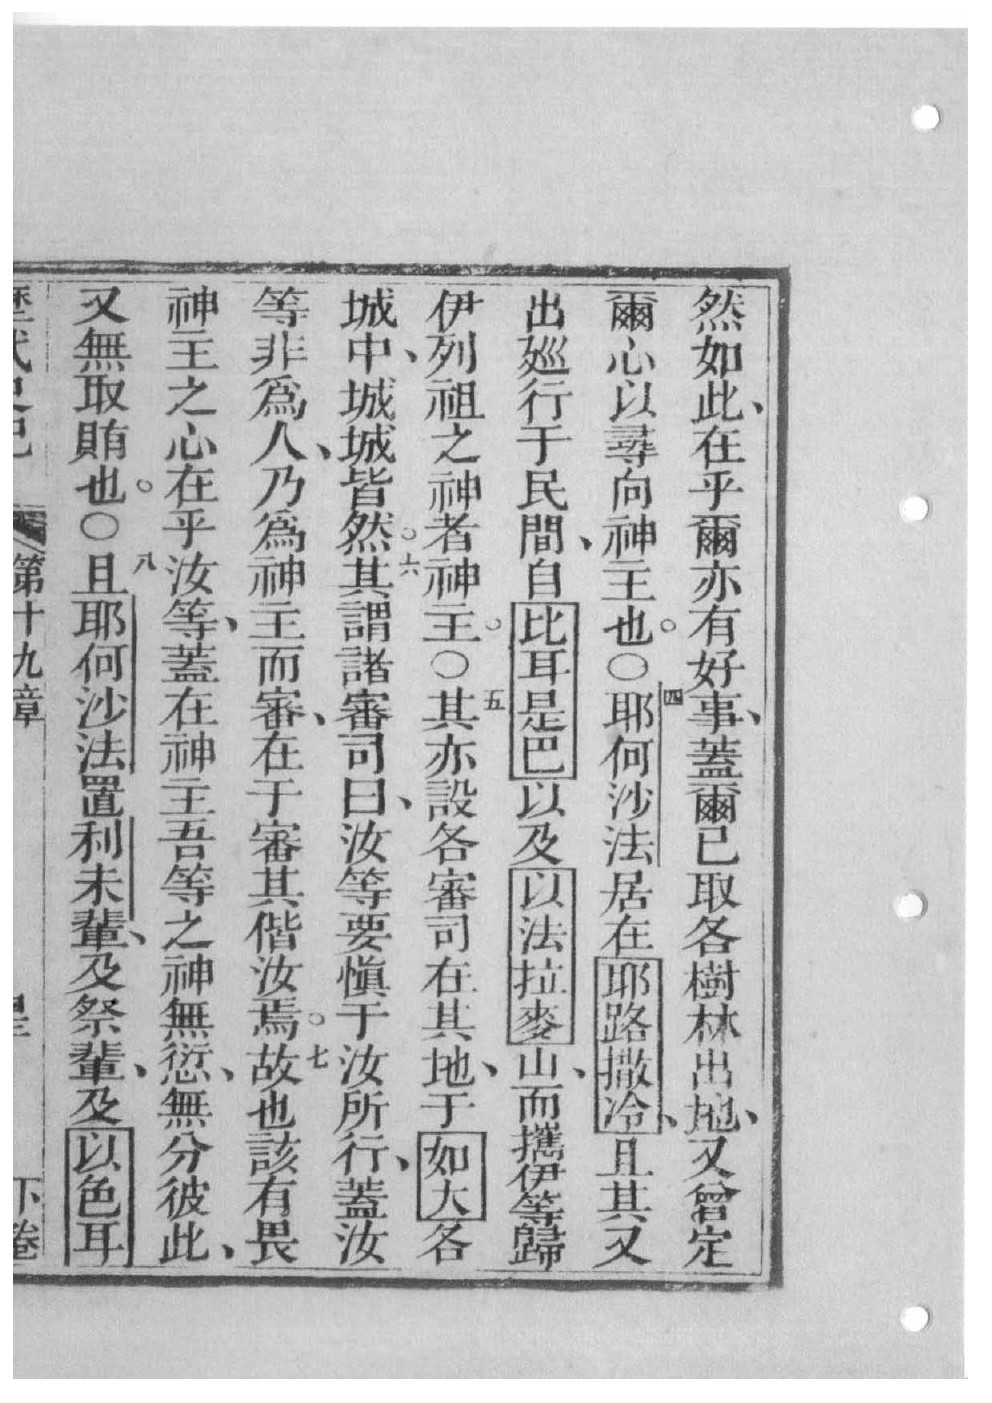 然如此、在乎爾亦有好事、蓋爾已取各樹林出地、又曾定
爾心以尋向神主也。○四耶何沙法居在耶路撒冷、且其又
出廵行于民間、自比耳是巴以及以法拉麥山、而攜伊等歸
伊列祖之神者神主。○五其亦設各審司在其地、于如大各
城中、城城皆然。六其謂諸審司曰、汝等要愼于汝所行、蓋汝
等非爲人、乃爲神主而審、在于審其偕汝焉。七故也該有畏
神主之心在乎汝等、蓋在神主吾等之神無愆、無分彼此、
又無取賄也。○八且耶何沙法置利未輩、及祭輩、及以色耳
歷代史記 第十九章 下卷